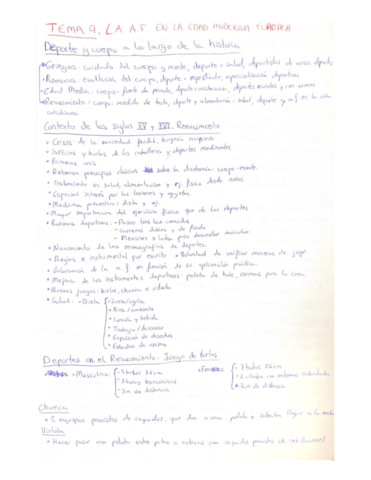 TEMA 9. LA A.F. EN LA EDAD MODERNA EUROPEA
Deporte y cuerpo a lo largo de la historia
• Griegos: cuidado del cuerpo y mente, deporte = salud, deportistas de varios deportes
• Romanos: exaltación del cuerpo, deporte = espectáculo, especialización deportiva
• Edad Media: cuerpo: fuente de pecado, deporte = , deportes rurales y con armas
• Renacimiento: cuerpo: medida de todo, deporte y alimentación = salud, deporte y a.f en la vida
cotidiana
Contexto de los siglos XV y XVI. Renacimiento
• Crisis de la sociedad feudal, burguesía
• Sátiras y burlas de los caballeros y deportes medievales
• Primeros
• Retoman principios clásicos sobre la dualidad cuerpo-mente.
• Tratamiento en salud, alimentación y ej. físico desde
• Especial interés por las lesiones y
• Medicina preventiva: dieta y ej.
• Mayor importancia del ejercicio físico que de los deportes
• Rutina deportiva: - Paseo tras las comidas
- Carreras dobles o de fondo
- o lucha para desarrollar músculos
• Nacimiento de las monografías de deportes.
• Reglas e instrumental por escrito • Voluntad de unificar maneras de jugar
• Valoración de la a.f. en función de su aplicación práctica.
• Mejora de los instrumentos deportivos: pelota de , normas para la
• Nuevos juegos: bolos, chueca o
• Salud: - Dieta • Sueño/vigilia
• Aire/ambiente
• Comida y bebida
• Trabajo/descanso
• Expulsión de desechos
• Estados de ánimo
Deportes en el Renacimiento: Juego de bolos
• Masculino: - 9 bolos 26cm
- 3 bolas
- 3m de distancia
• Femenino: - 9 bolos 26cm
- 2 con extremos redondeados
de distancia
Chueca
• 2 equipos provistos de cayados, que dan a una pelota e intentan llegar a la meta
Vilorta
• Hacer pasar una pelota entre pitos o estacas con cayados provistos de red (lacrosse)